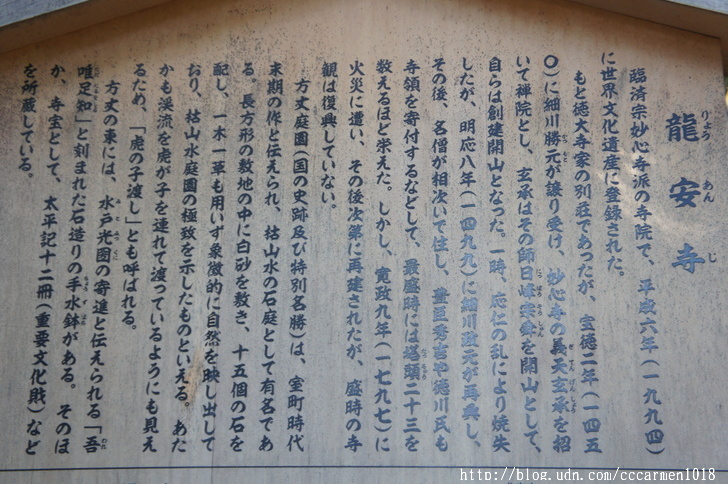 龍安寺
りょうあんじ
臨済宗妙心寺派の寺院で、平成六年(一九九四)
に世界文化遺産に登録された。
もと徳大寺家の別荘であったが、宝徳二年(一四五
〇)に細川勝元が譲り受け、妙心寺の義天玄承を招
いて禅院とし、玄承はその師日峰宗舜を開山として、
自らは創建開山となった。一時、応仁の乱により焼失
したが、明応八年(一四九九)に細川政元が再興し、
その後、名僧が相次いで住し、豊臣秀吉や徳川氏も
寺領を寄付するなどして、最盛時には塔頭二十三を
数えるほど栄えた。しかし、寛政九年(一七九七)に
火災に遭い、その後次第に再建されたが、盛時の寺
観は復興していない。
方丈庭園(国の史跡及び特別名勝)は、室町時代
末期の作と伝えられ、枯山水の石庭として有名であ
る。長方形の敷地の中に白砂を敷き、十五個の石を
配し、一木一草も用いず象徴的に自然を映し出して
おり、枯山水庭園の極致を示したものといえる。あた
かも渓流を虎が子を連れて渡っているようにも見え
るため、「虎の子渡し」とも呼ばれる。
方丈の東には、水戸光圀の寄進と伝えられる「吾
唯足知」と刻まれた石造りの手水鉢がある。そのほ
か、寺宝として、太平記十二冊(重要文化財)など
を所蔵している。
http://blog.udn.com/cccarmen1018